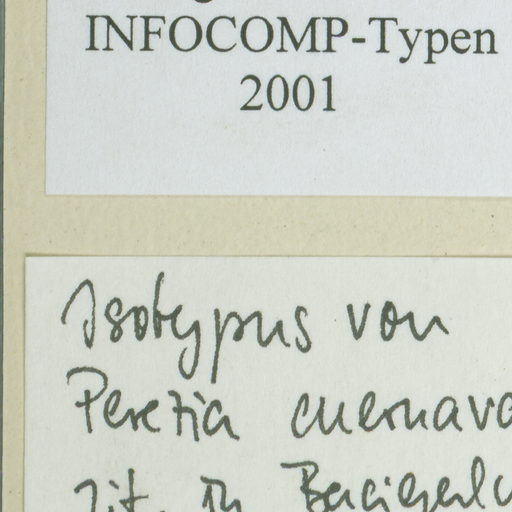 INFOCOMP-Typen
2001
Isotypus von
Perezia cuernava
zit. in